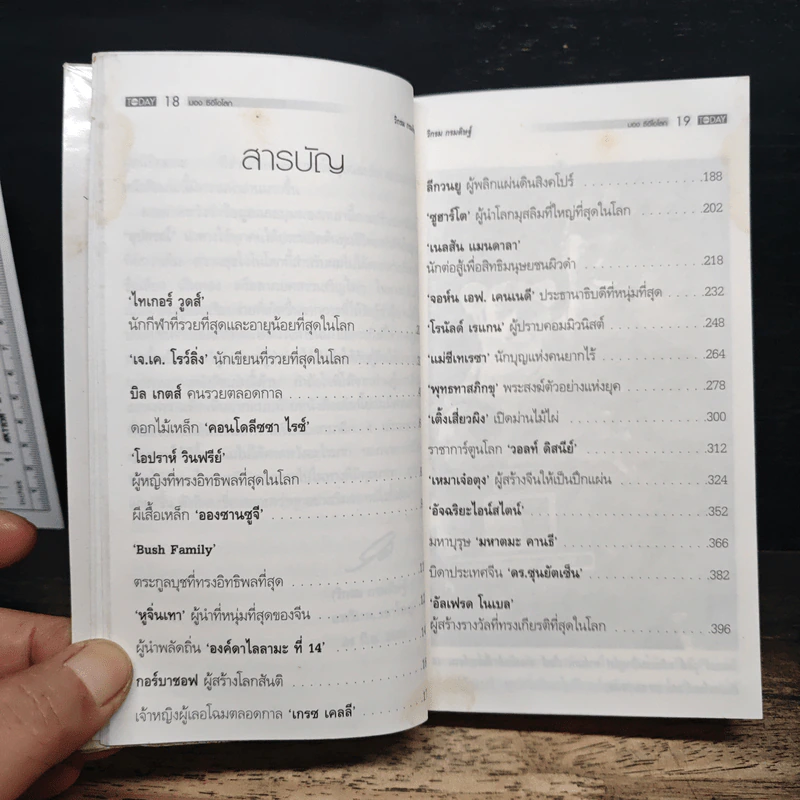 TODAY 18 มอง ซีอีโอโลก
วิกรม
สารบัญ
'ไทเกอร์ วูดส์'
นักกีฬาที่รวยที่สุดและอายุน้อยที่สุดในโลก
'เจ.เค. โรว์ลิ่ง' นักเขียนที่รวยที่สุดในโลก
บิล เกตส์ คนรวยตลอดกาล
ดอกไม้เหล็ก 'คอนโดลีซซา ไรซ์'
'โอปราห์ วินฟรีย์'
ผู้หญิงที่ทรงอิทธิพลที่สุดในโลก
ผีเสื้อเหล็ก 'อองซานซูจี'
'Bush Family'
ตระกูลบุชที่ทรงอิทธิพลที่สุด
'หูจิ่นเทา' ผู้นำที่หนุ่มที่สุดของจีน
ผู้นำพลัดถิ่น 'องค์ดาไลลามะ ที่ 14'
กอร์บาชอฟ ผู้สร้างโลกสันติ
เจ้าหญิงผู้เลอโฉมตลอดกาล 'เกรซ เคลลี่'
วิกรม กรมดิษฐ์ มอง ซีอีโอโลก 19 TODAY
ลีกวนยู ผู้พลิกแผ่นดินสิงคโปร์ 188
'ซูฮาร์โต' ผู้นำโลกมุสลิมที่ใหญ่ที่สุดในโลก 202
'เนลสัน แมนดาลา'
นักต่อสู้เพื่อสิทธิมนุษยชนผิวดำ 218
'จอห์น เอฟ. เคนเนดี' ประธานาธิบดีที่หนุ่มที่สุด 232
'โรนัลด์ เรแกน' ผู้ปราบคอมมิวนิสต์ 248
'แม่ชีเทเรซา' นักบุญแห่งคนยากไร้ 264
'พุทธทาสภิกขุ' พระสงฆ์ตัวอย่างแห่งยุค 278
'เติ้งเสี่ยวผิง' เปิดม่านไม้ไผ่ 300
ราชาการ์ตูนโลก 'วอลท์ ดิสนีย์' 312
'เหมาเจ๋อตุง' ผู้สร้างจีนให้เป็นปึกแผ่น 324
'อัจฉริยะไอน์สไตน์' 352
มหาบุรุษ 'มหาตมะ คานธี' 366
บิดาประเทศจีน 'ดร.ซุนยัตเซ็น' 382
'อัลเฟรด โนเบล'
ผู้สร้างรางวัลที่ทรงเกียรติที่สุดในโลก 396